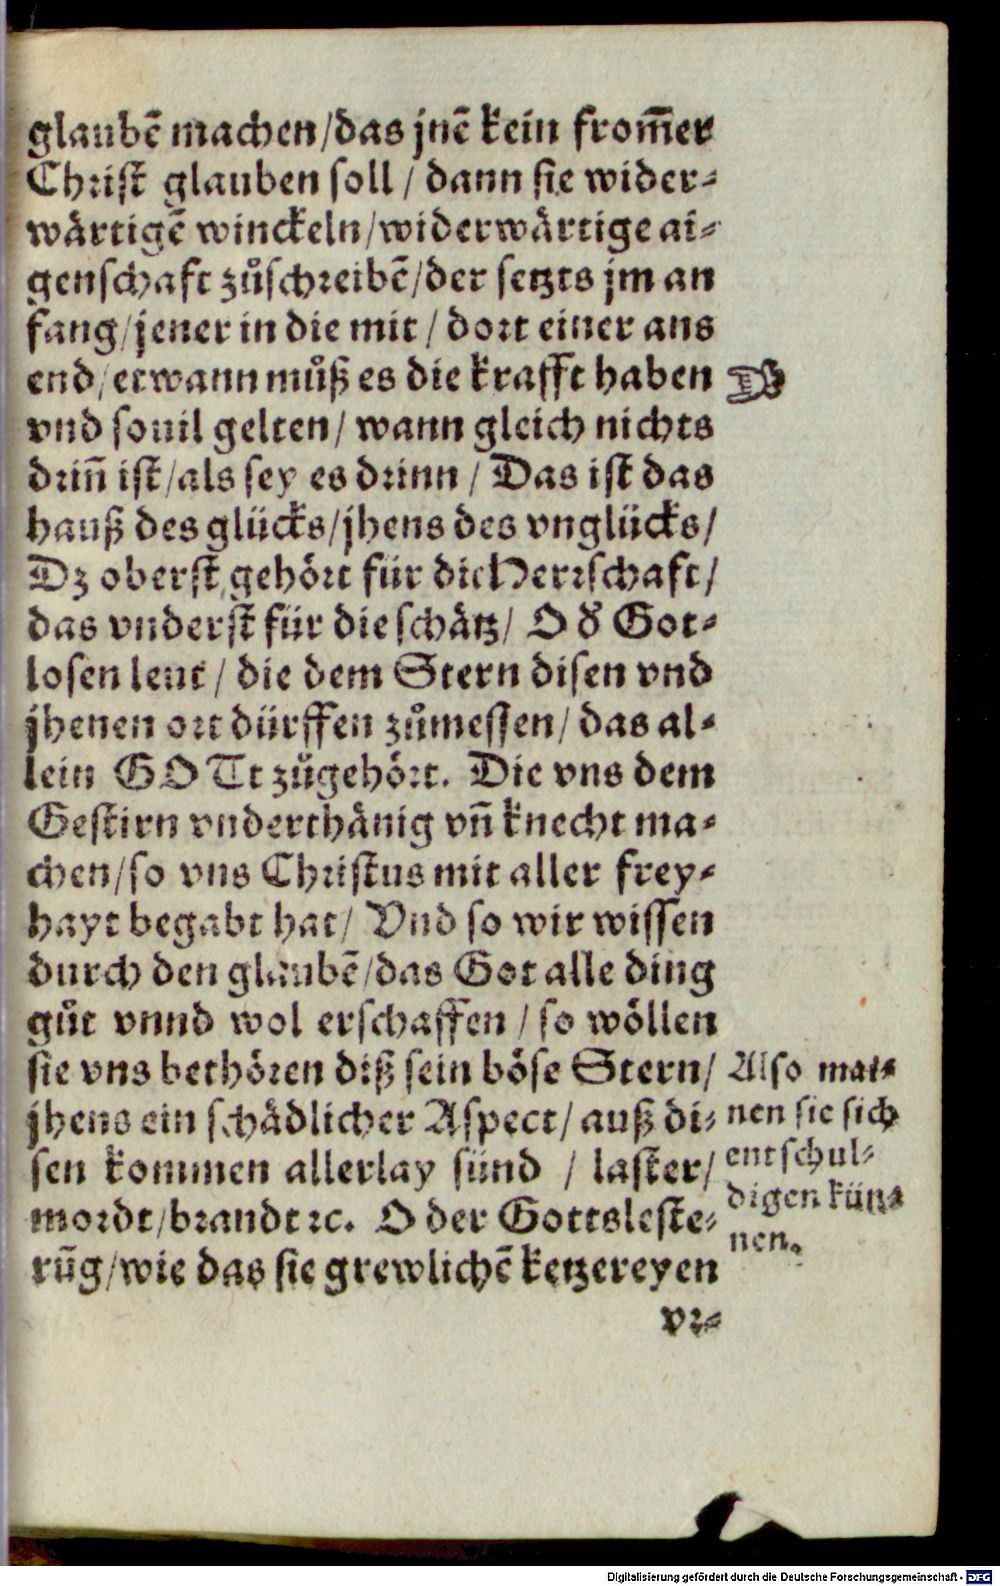 glaubē machen/das jnē kein from̄er
Christ glauben soll / dann sie wider⸗
wårtigē winckeln/widerwårtige ai⸗
genschaft zůschreibē/der setzts jm an
fang/jener in die mit / dort einer ans
end/etwann můß es die krafft haben
vnd souil gelten/ wann gleich nichts
drin̄ ist/als sey es drinn / Das ist das
hauß des glücks/jhens des vnglücks/
Dz oberst gehört für die Herrschaft/
das vnderst für die schåtz/ O d̄ Got⸗
losen leut / die dem Stern disen vnd
jhenen ort dürffen zůmessen/ das al⸗
lein GOTt zůgehört. Die vns dem
Gestirn vnderthånig vn̄ knecht ma⸗
chen/so vns Christus mit aller frey⸗
hayt begabt hat/ Vnd so wir wissen
durch den glaubē/das Got alle ding
gůt vnnd wol erschaffen / so wöllen
sie vns bethören diß sein böse Stern/
jhens ein schådlicher Aspect/ auß di⸗
sen kommen allerlay sünd / laster/
mordt/brandt ꝛc. O der Gottsleste⸗
rūg/wie das sie grewlichē ketzereyen
vr⸗
Also mai⸗
nen sie sich
entschul⸗
digen kün⸗
nen.
Digitalisierung gefördert durch die Deutsche Forschungsgemeinschaft - DFG